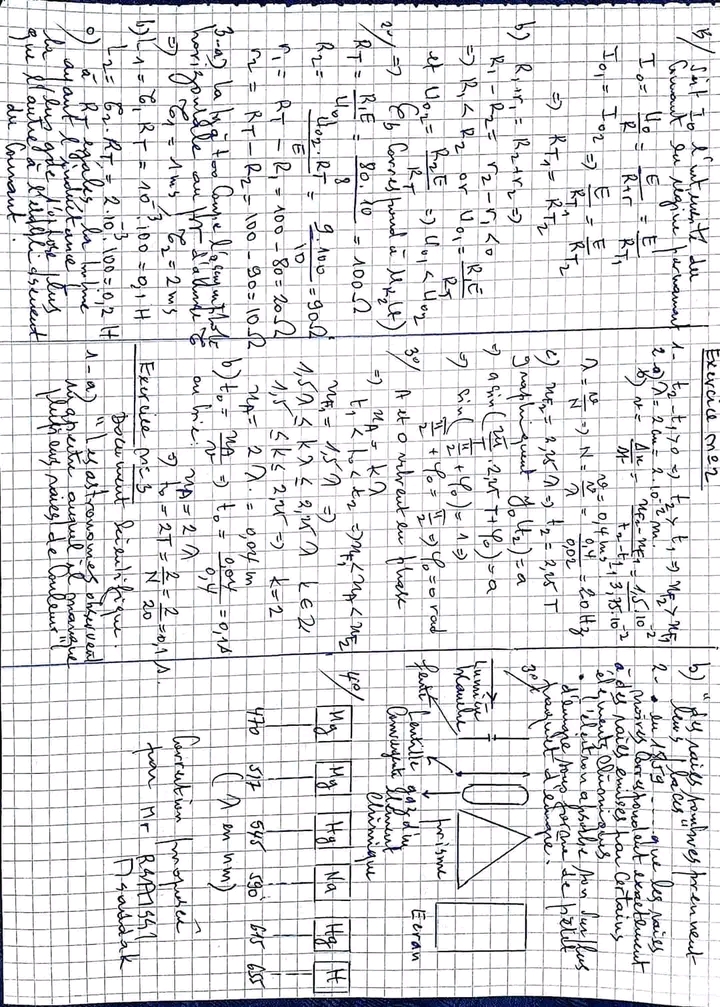 1°/ Soit I0 l'intensité du
courant en régime permanent
I0 = U0/R = E/(R+r) = E/RT1
I01 = I02 ⇒ E/RT1 = E/RT2
⇒ RT1 = RT2
b) R1+r1 = R2+r2 ⇒
R1 - R2 = r2 - r1 < 0
⇒ R1 < R2 or U01 = R1E/RT
et U02 = R2E/RT ⇒ U01 < U02
2°/ ⇒ Cb correspond à UR2(t)
RT = R1E/U01 = 80.10/8 = 100Ω
R2 = U02.RT/E = 9.100/10 = 90Ω
r1 = RT - R1 = 100 - 80 = 20Ω
r2 = RT - R2 = 100 - 90 = 10Ω
3-a) La tg à t=0 coupe l'asymptote
horizontale au pt d'abscisse τ
⇒ τ1 = 1ms, τ2 = 2ms
b) L1 = τ1 RT = 10⁻³.100 = 0,1H
L2 = τ2.RT = 2.10⁻³.100 = 0,2H
c) à RT égales la bobine
ayant l'inductance
la plus gde s'oppose plus
que l'autre à l'établissement
du courant.
Exercice n°2
1- t2-t1 > 0 ⇒ t2 > t1 ⇒ xF2 > xF1
2-a) λ = 2cm = 2.10⁻² m.
b) v = Δx/Δt = (xF2-xF1)/(t2-t1) = 1,5.10⁻²/3,75.10⁻²
v = 0,4 m/s
λ = v/N ⇒ N = v/λ = 0,4/0,02 = 20Hz
c) xF2 = 2,25λ ⇒ t2 = 2,25T
graphiquement y0(t2) = a
⇒ a sin(2π/T.2,25T + φ0) = a
⇒ sin(π/2 + φ0) = 1 ⇒
π/2 + φ0 = π/2 ⇒ φ0 = 0 rad
3°/ A et O vibrent en phase
⇒ xA = kλ
t1 < t0 < t2 ⇒ xF1 < xA < xF2
xF1 = 1,5λ ⇒
1,5λ ≤ kλ ≤ 2,25λ k∈Z
1,5 ≤ k ≤ 2,25 ⇒ k = 2
xA = 2λ = 0,04m
b) t0 = xA/v ⇒ t0 = 0,04/0,4 = 0,1s
ou bien: xA = 2λ
⇒ t0 = 2T = 2/N = 2/20 = 0,1s.
Exercice n°3
Document scientifique.
1-a) "Les astronomes observent
un spectre auquel il manque
plusieurs raies de couleur"
b) "des raies sombres prennent
leurs places"
2- • en 1859 --- que les raies
noires correspondent exactement
à des raies émises par certains
éléments chimiques
• l'électron absorbe son surplus
d'énergie sous forme de petit
paquet d'énergie.
3°/
Lumière
blanche
fente
Lentille
convergente
gaz d'un
élément
chimique
prisme
Ecran
4°/
Hg Hg Hg Na Hg H
470 517 545 590 615 655
(λ en nm)
Correction proposée
par Mr